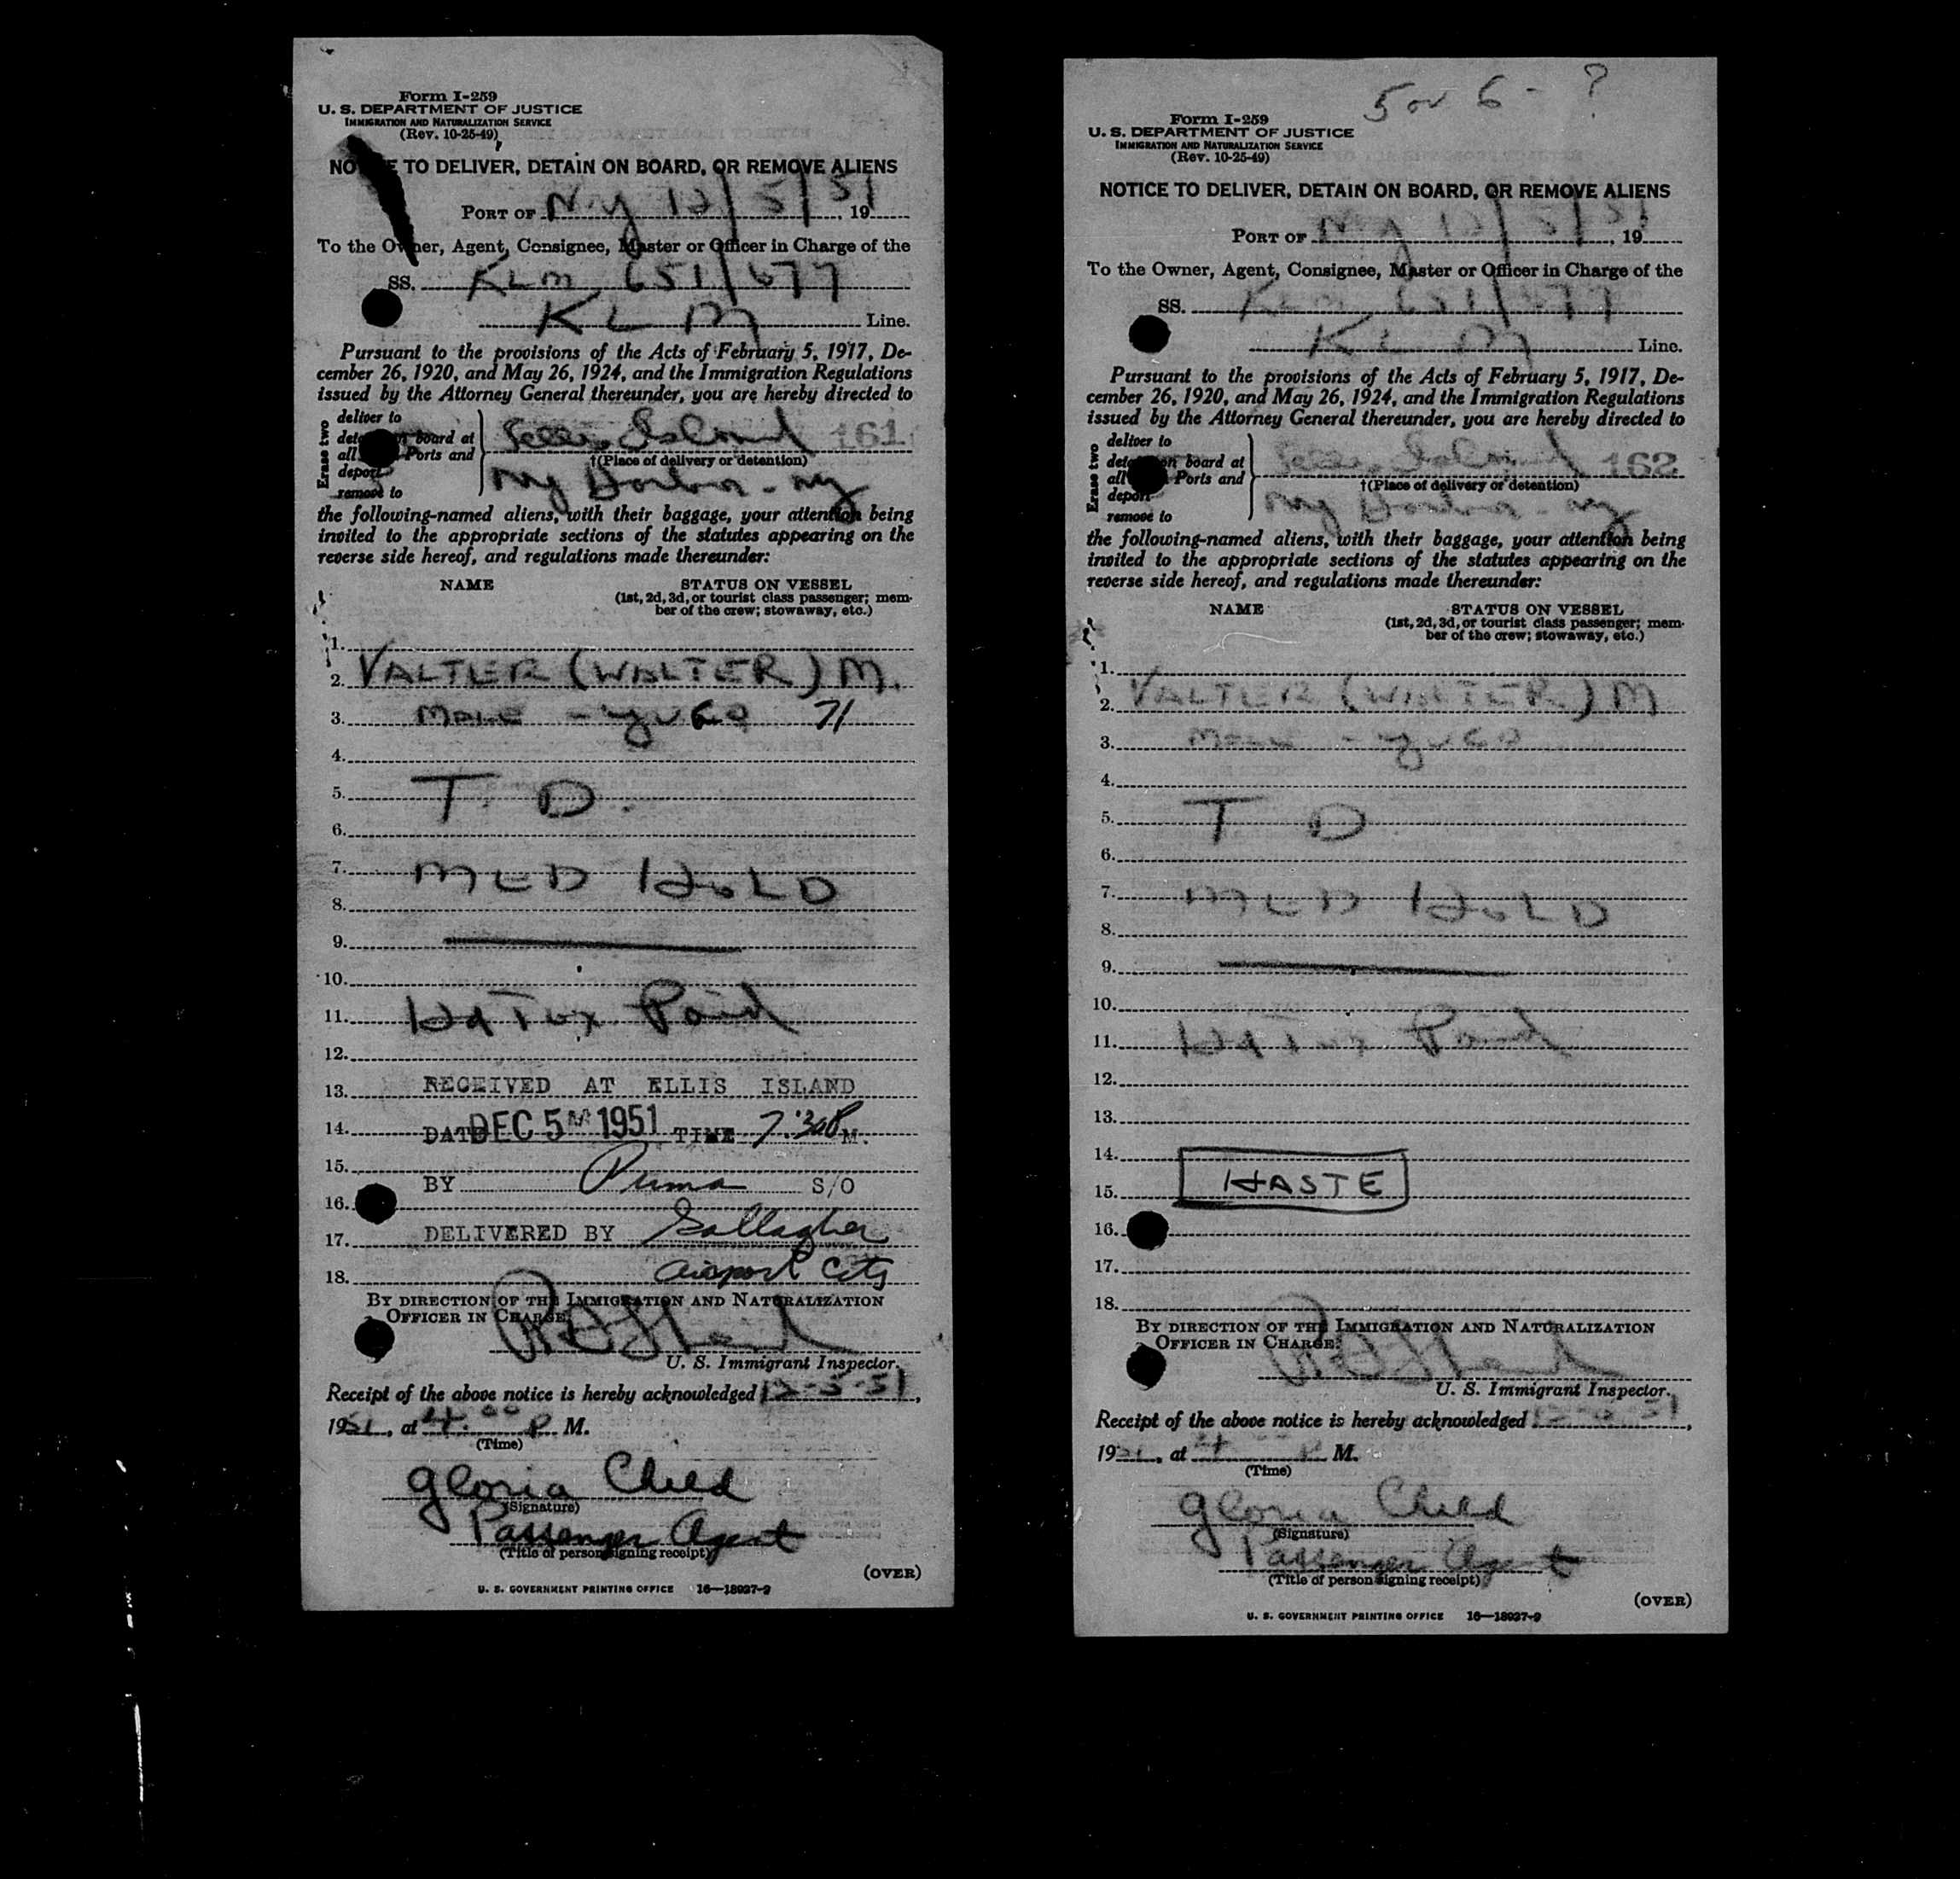 Form I-259
U. S. DEPARTMENT OF JUSTICE
IMMIGRATION AND NATURALIZATION SERVICE
(Rev. 10-25-49)
NOTICE TO DELIVER, DETAIN ON BOARD, OR REMOVE ALIENS
PORT OF N.Y 12/5/51, 19
To the Owner, Agent, Consignee, Master or Officer in Charge of the
SS. KLM 651/677
KLM Line.
Pursuant to the provisions of the Acts of February 5, 1917, De-
cember 26, 1920, and May 26, 1924, and the Immigration Regulations
issued by the Attorney General thereunder, you are hereby directed to
Erase two
deliver to
detain on board at
all Ports and
deport
remove to
Ellis Island 161
†(Place of delivery or detention)
NY Harbor - NY
the following-named aliens, with their baggage, your attention being
invited to the appropriate sections of the statutes appearing on the
reverse side hereof, and regulations made thereunder:
NAME STATUS ON VESSEL
(1st, 2d, 3d, or tourist class passenger; mem-
ber of the crew; stowaway, etc.)
1.
2. VALTER (WALTER) M.
3. MALE - YUGO 71
4.
5. T. D.
6.
7. MED HOLD
8.
9.
10.
11. Hd Tax Paid
12.
13. RECEIVED AT ELLIS ISLAND
14. DATE DEC 5 1951 TIME 7:30 P M.
15.
BY Puma S/O
16.
17. DELIVERED BY Gallagher
18. Airport City
BY DIRECTION OF THE IMMIGRATION AND NATURALIZATION
OFFICER IN CHARGE:
U. S. Immigrant Inspector.
Receipt of the above notice is hereby acknowledged 12-5-51,
1951, at 4:00 P M.
(Time)
Gloria Child
(Signature)
Passenger Agent
(Title of person signing receipt)
(OVER)
U. S. GOVERNMENT PRINTING OFFICE 16—18927-2
5 or 6 - ?
Form I-259
U. S. DEPARTMENT OF JUSTICE
IMMIGRATION AND NATURALIZATION SERVICE
(Rev. 10-25-49)
NOTICE TO DELIVER, DETAIN ON BOARD, OR REMOVE ALIENS
PORT OF NY 12/5/51, 19
To the Owner, Agent, Consignee, Master or Officer in Charge of the
SS. KLM 651/677
KLM Line.
Pursuant to the provisions of the Acts of February 5, 1917, De-
cember 26, 1920, and May 26, 1924, and the Immigration Regulations
issued by the Attorney General thereunder, you are hereby directed to
Erase two
deliver to
detain on board at
all Ports and
deport
remove to
Ellis Island 162
†(Place of delivery or detention)
NY Harbor - NY
the following-named aliens, with their baggage, your attention being
invited to the appropriate sections of the statutes appearing on the
reverse side hereof, and regulations made thereunder:
NAME STATUS ON VESSEL
(1st, 2d, 3d, or tourist class passenger; mem-
ber of the crew; stowaway, etc.)
1.
2. VALTER (WALTER) M
3. MALE - YUGO
4.
5. T D
6.
7. MED HOLD
8.
9.
10.
11. Hd Tax Paid
12.
13.
14.
15. HASTE
16.
17.
18.
BY DIRECTION OF THE IMMIGRATION AND NATURALIZATION
OFFICER IN CHARGE:
U. S. Immigrant Inspector.
Receipt of the above notice is hereby acknowledged 12-5-51,
1951, at 4:00 P M.
(Time)
Gloria Child
(Signature)
Passenger Agent
(Title of person signing receipt)
(OVER)
U. S. GOVERNMENT PRINTING OFFICE 16—18927-2